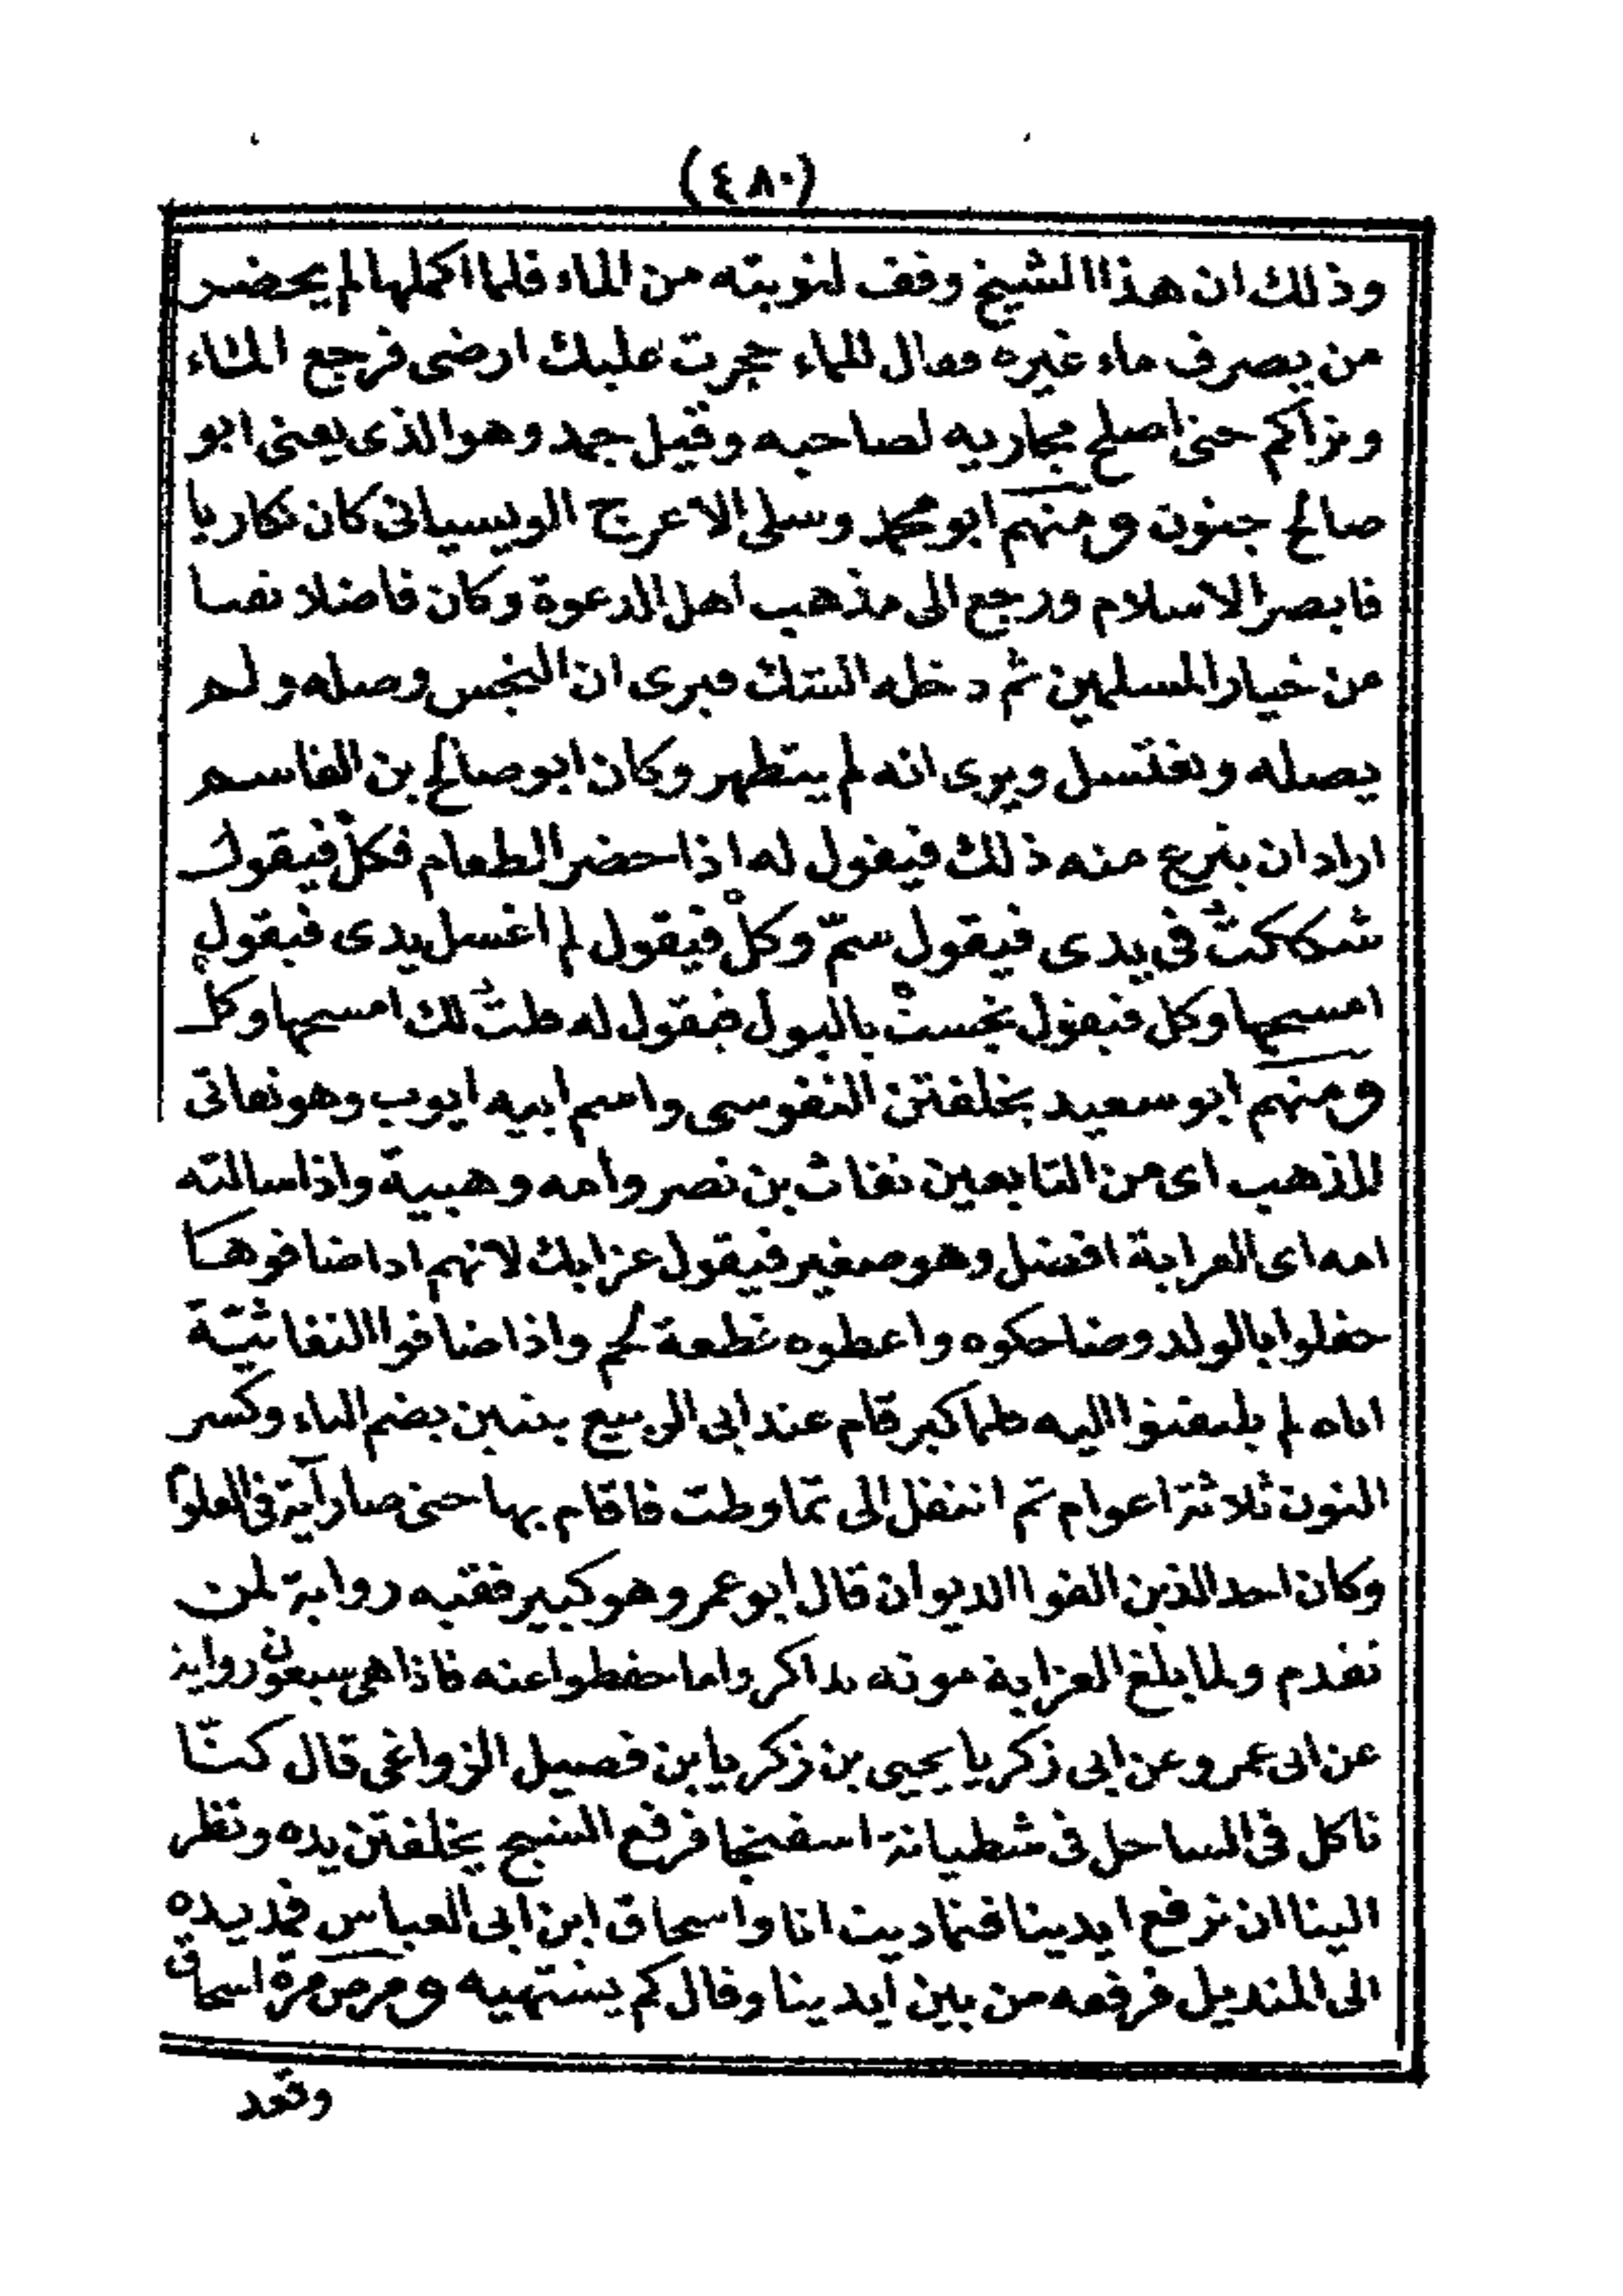 (٤٨٠)
وذلك ان هذا الشيخ وقف لنوبته من الماء فلما اكملها لم يحضر
من يصرف ماء غيره فقال للماء حجرت عليك ارضى فرجع الماء
وتراكم حتى اصلح مجاريه لصاحبه وقيل جمد وهو الذى يعنى ابو
صالح جنون ومنهم ابو محمد وسلى الاعرج الويسيانى كان نكاريا
فابصر الاسلام ورجع الى مذهب اهل الدعوة وكان فاضلا نفسا
من خيار المسلمين ثم دخله الشك فيرى ان النجس وصله ولم
يصله ويغتسل ويرى انه لم يتطهر وكان ابو صالح بن القاسم
اراد ان ينزع منه ذلك فيقول له اذا حضر الطعام فكلْ فيقول
شككتُ فى يدى فيقول سمّ وكلْ فيقول لم اغسل يدى فيقول
امسحها وكل فيقول نجستْ بالبول فيقول له قلتُ لك امسحها وكل
ومنهم ابو سعيد يخلفتن النفوسى واسم ابيه ايوب وهو نفاثى
المذهب اى من التابعين نفاث بن نصر وامه وهبية واذا سالته
امه اى العزابة افضل وهو صغير فيقول عزابك لانهم اذا ضافوها
حفلوا بالولد وضاحكوه واعطوه قطعة لحم واذا ضافوا النفاثيّة
اباه لم يلتفتوا اليه فلما كبر قام عند ابى الربيع بتنين بضم التاء وكسر
النون ثلاثة اعوام ثم انتقل الى تماوطت فاقام بها حتى صار آية فى العلوم
وكان احد الذين الفوا الديوان قال ابو عمرو هو كبير فقيه رواية لمن
تقدم ولما بلغ العزابة موته تذاكروا ما حفظوا عنه فاذا هى سبعون رواية
عن ابى عمرو عن ابى زكريا يحيى بن زكريا بن فصيل الزواغى قال كنّا
ناكل فى الساحل فى شطيانة اسفنجا فرفع الشيخ يخلفتن يده ونظر
الينا ان نرفع ايدينا فتماديت انا واسحاق ابن ابى العباس فمد يده
الى المنديل فرفعه من بين ايدينا وقال كم يشتهيه ومرض مرة اسحاق
وقعد